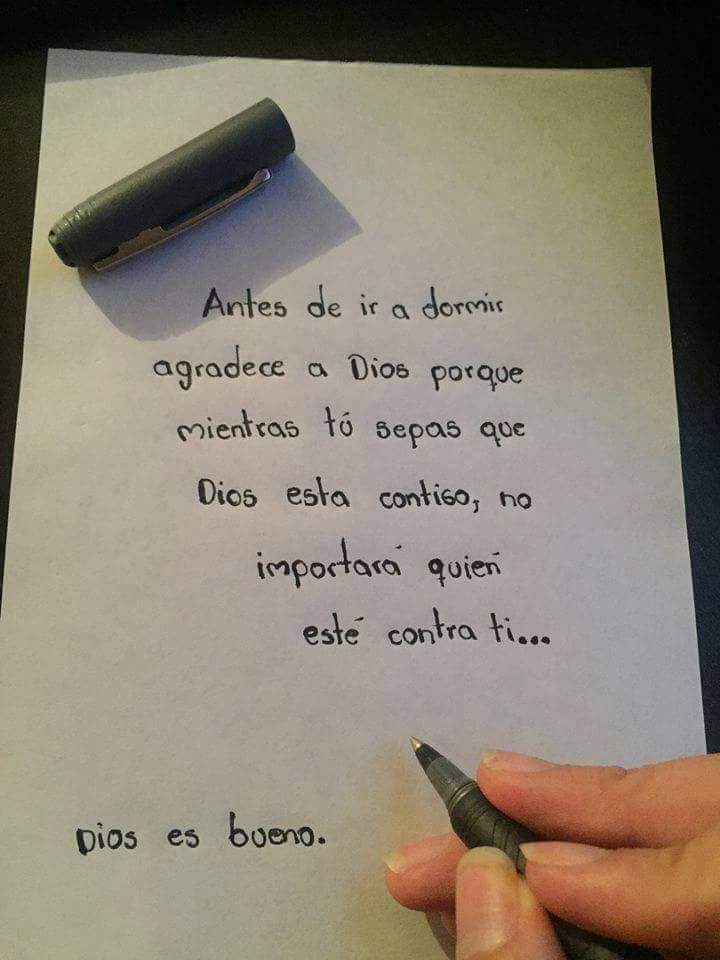 Antes de ir a dormir
agradece a Dios porque
mientras tú sepas que
Dios esta contigo, no
importará quien
esté contra ti...
Dios es bueno.